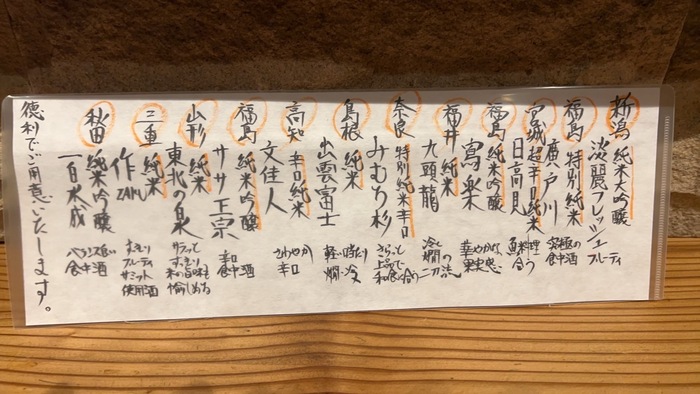 新潟 純米大吟醸
淡麗フレッシュ
フルーティ
福島 特別純米
廣戸川
究極の
食中酒
宮城 超辛口純米
日高見
魚料理
合う
福島 純米吟醸
寫楽
華やかな
果実感
福井 純米
九頭龍
冷と
燗の
二刀流
奈良 特別純米辛口
みむろ杉
さらっと
上品で
和食に合う
島根 純米
出雲富士
燗・冷
高知 辛口純米
文佳人
さわやか
辛口
福島 純米吟醸
ササ正宗
辛口
食中酒
山形 純米
東北の泉
サラっと
すっきり
米の旨味も
愉しめる
三重 純米
作 ZAKU
すっきり
フルーティ
サミット
使用酒
秋田 純米吟醸
一白水成
バランス良い
食中酒
徳利でご用意いたします。